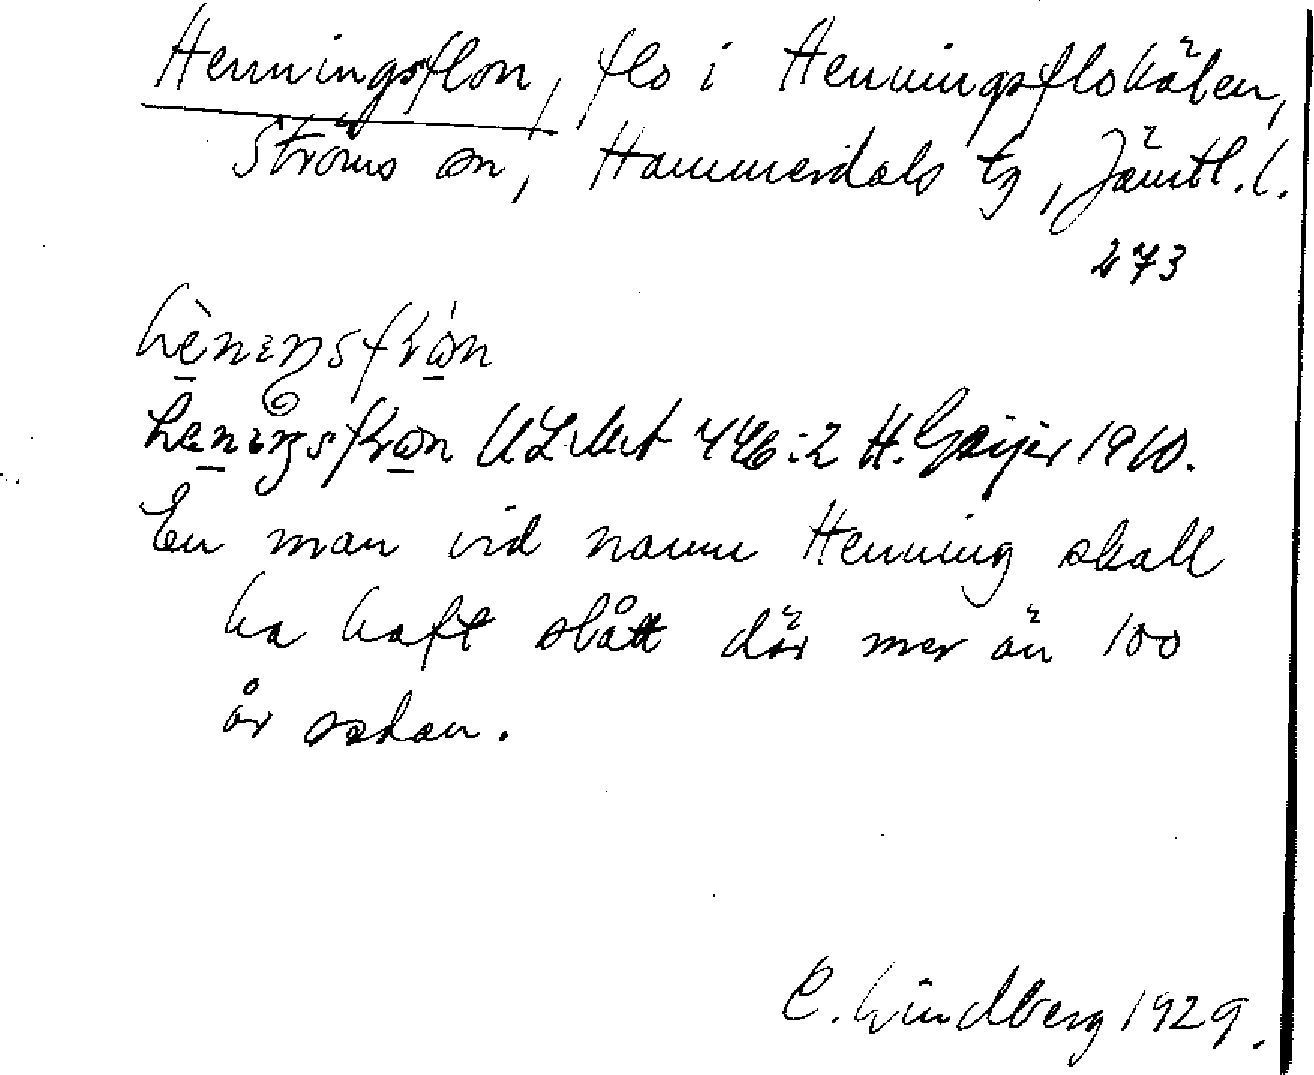 Henningsflon, flo i Henningsflokälen,
Ströms sn, Hammerdals tg, Jämtl. l.
273
hèneŋsfłón
heneŋsfłon ULMA 446:2 H. Geijer 1910.
En man vid namn Henning skall
ha haft slått där mer än 100
år sedan.
C. Lindberg 1929.